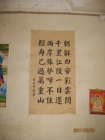 朝辞白帝彩雲間
千里江陵一日還
兩岸猿聲啼不住
輕舟已過萬重山